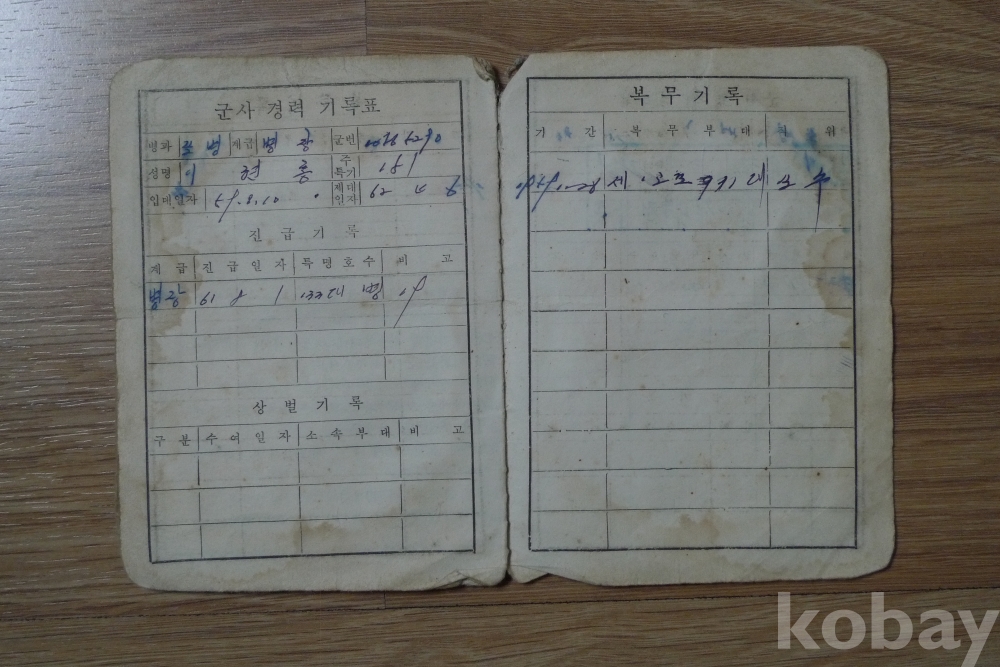 군사 경력 기록표
병과 포병 계급 병장 군번
성명 이 현 홍 주특기 181
입대일자 59.8.10. 제대일자 62 4 6
진 급 기 록
계 급 진 급 일 자 특 명 호 수 비 고
병장 61 8 1
상 벌 기 록
구 분 수 여 일 자 소 속 부 대 비 고
복 무 기 록
기 간 복 무 부 대 직 위
kobay